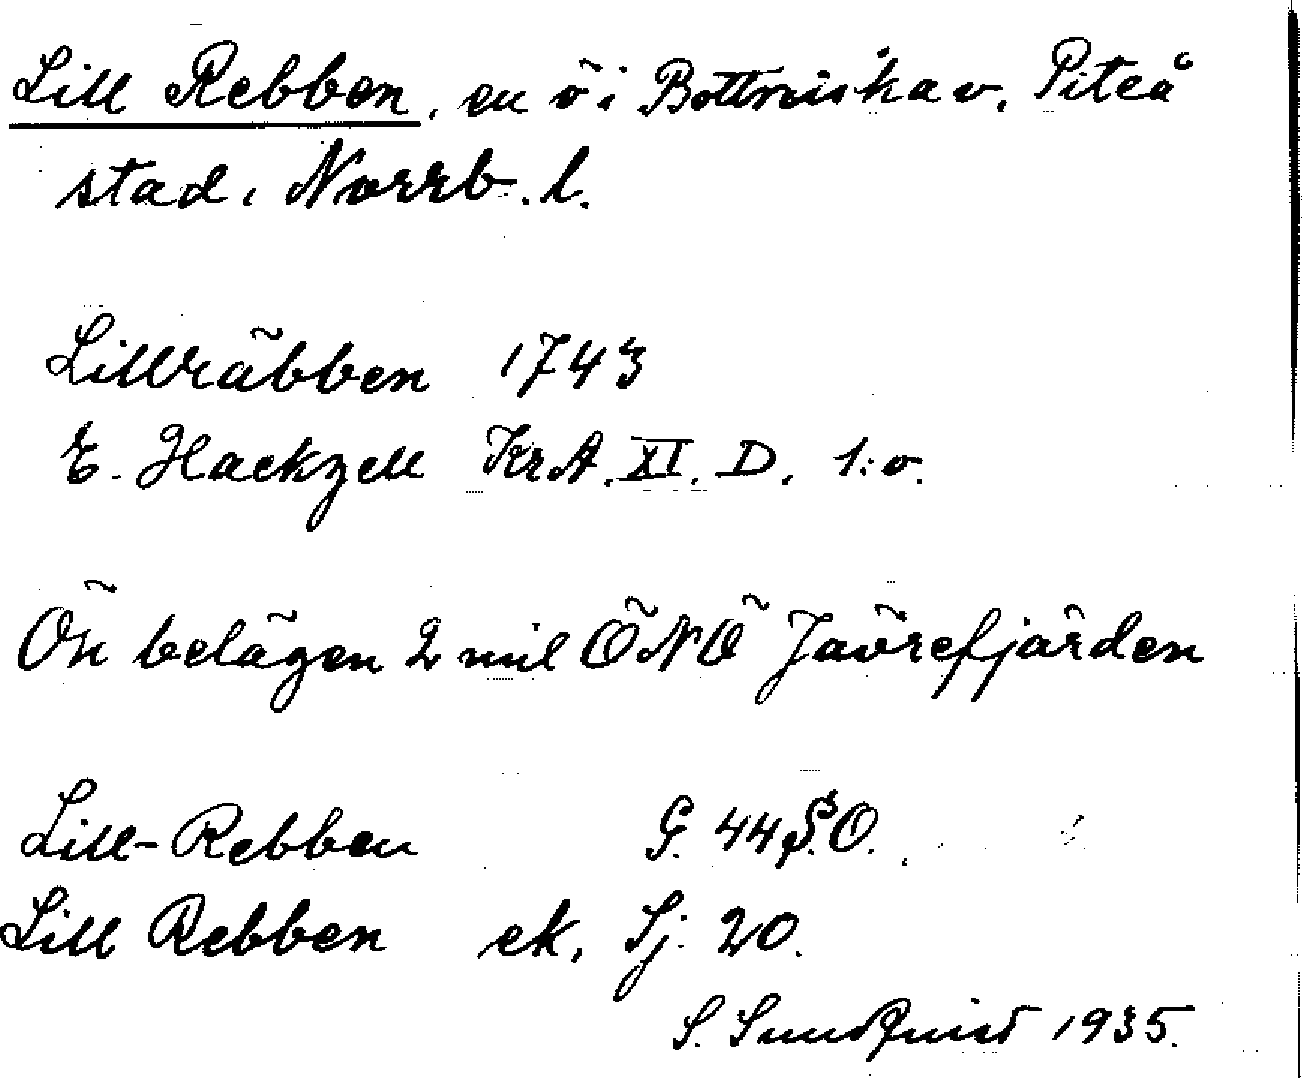 Lill Rebben, en ö i Bottniska v. Piteå
stad. Norrb. l.
Lillräbben 1743
E. Hackzell KrA. XI. D. 1:o.
Ön belägen 2 mil ÖNÖ Jävrefjärden
Lill-Rebben G. 44 S.O.
Lill Rebben ek. Sj. 20.
S. Sundquist 1935.